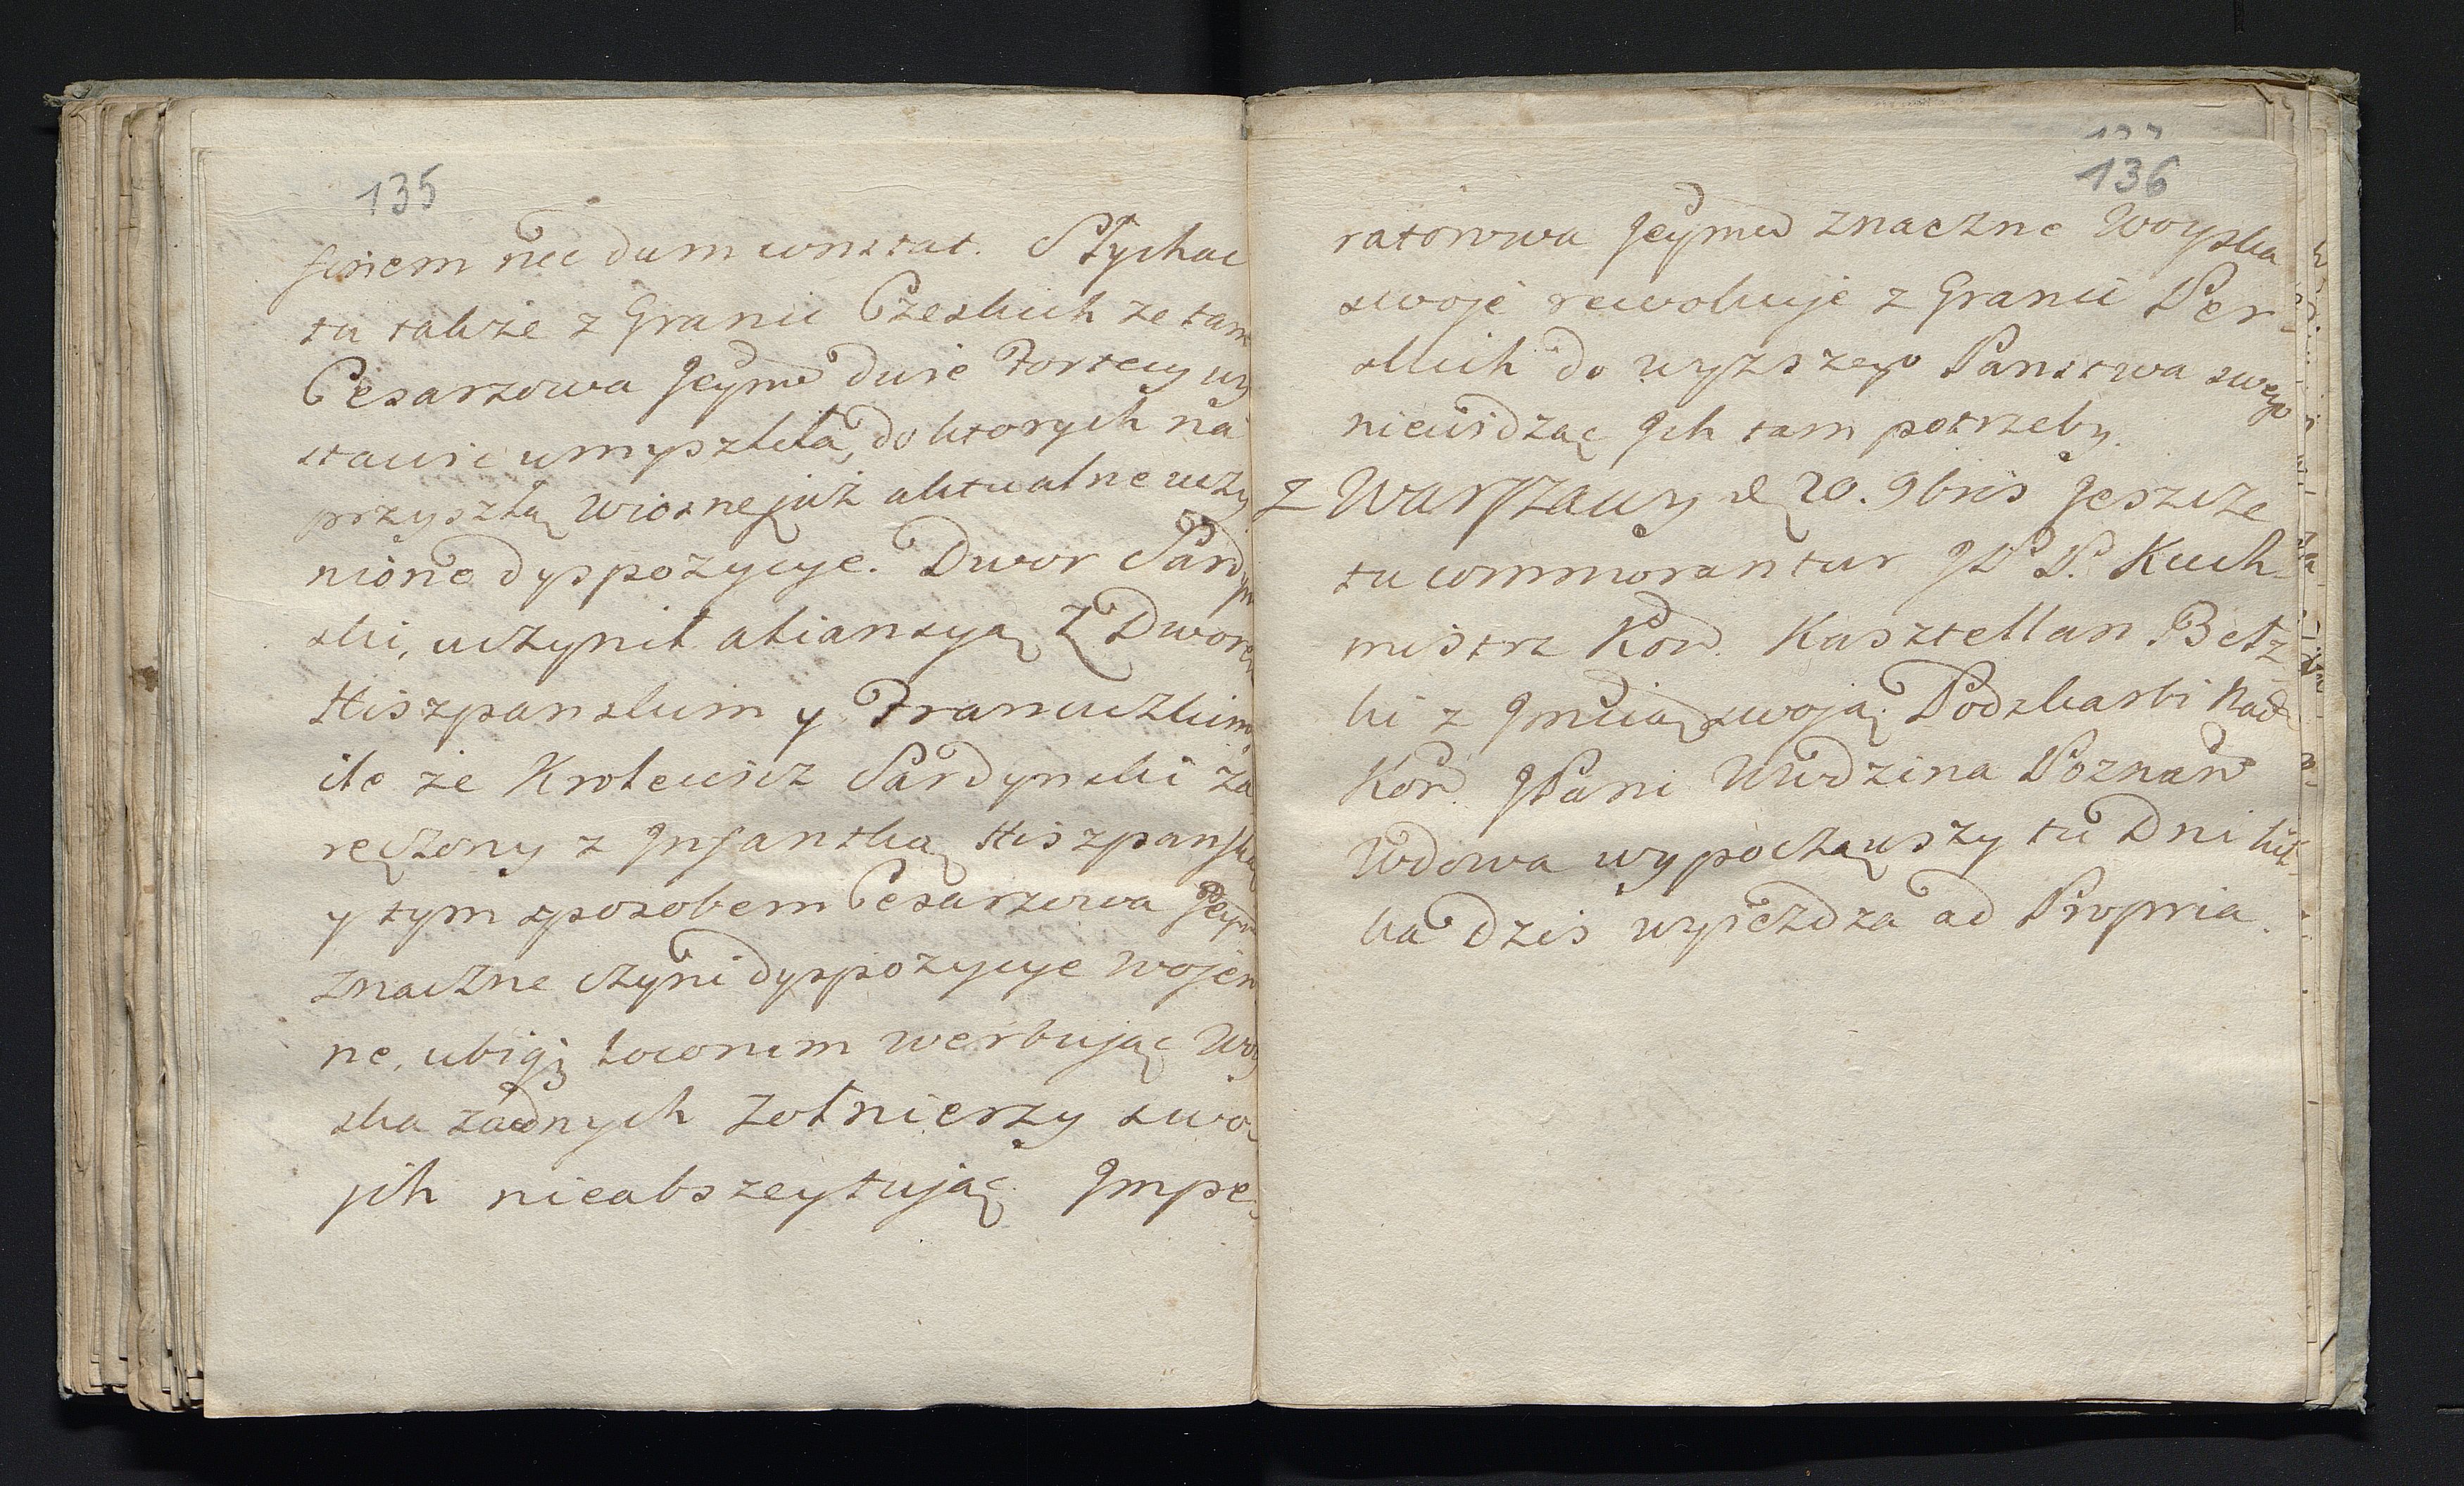 135
finem nec dum constat. Słychac
tu takze z Granic Czeskich ze tam
Cesarzowa Jeymć dwie Fortecy wy
stawic umyszliła, do ktorych na
przyszłą wiosnę już aktualne uczy
nione dyspozycye. Dwor Sardyn
ski, uczynił aliansyą z Dworem
Hiszpanskim y Francuzkim,
ile że Krolewicz Sardynski za
ręczony z Jnfantką Hiszpanską
y tym sposobem Cesarzowa Jeym
znaczne czyni dyspozycye wojen
ne, ubiq; locorum werbując Woy
ska zadnych Zołnierzy swo-
jch nieabszeytując. Jmpe-
136
ratorowa Jeymć znaczne Woyska
swoje rewokuje z Granic Per-
skich do wyzszego Panstwa swego
niewidząc Jch tam potrzeby.
Z Warszawy d 20. 9bris Jeszcze
tu commorantur JPP. Kuch-
mistrz Kor. Kasztellan Bełz-
ki z Jmcią swoją. Podskarbi Nad.
Kor. JPani Wdzina Poznan
Wdowa wypocząwszy tu Dni kil-
ka Dzis wyieżdza ad Propria.